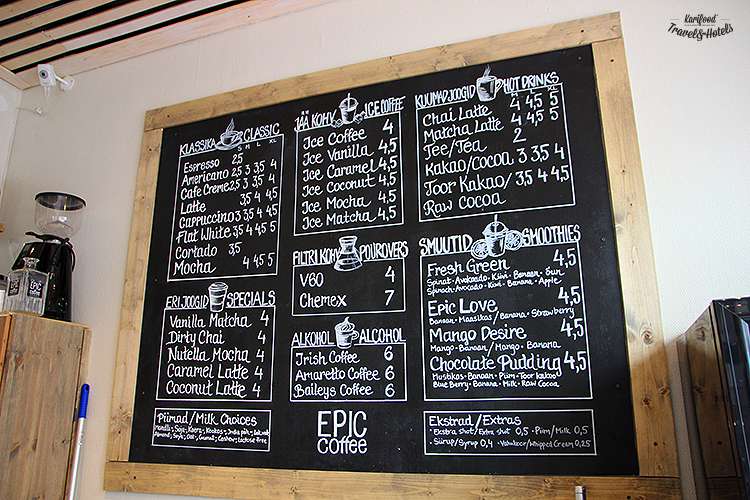 Karifood
Travel&Hotels
KLASSIKA CLASSIC
S M L XL
Espresso 2,5
Americano 2,5 3 3,5 4
Cafe Creme 2,5 3 3,5
Latte 3,5 4 4,5
Cappuccino 3 3,5 4 4,5
Flat White 3,5 4 4,5 5
Cortado 3,5
Mocha 4 4,5 5
ERIJOOGID SPECIALS
Vanilla Matcha 4
Dirty Chai 4
Nutella Mocha 4
Caramel Latte 4
Coconut Latte 4
Piimad/Milk Choices
Almond, Soya, Oat, Coconut, Cashew, Lactose Free
JÄÄ KOHV ICE COFFEE
Ice Coffee 4
Ice Vanilla 4,5
Ice Caramel 4,5
Ice Coconut 4,5
Ice Mocha 4,5
Ice Matcha 4,5
FILTRI KOHV POUROVERS
V60 4
Chemex 7
ALKOHOL ALCOHOL
Irish Coffee 6
Amaretto Coffee 6
Baileys Coffee 6
EPIC
Coffee
KUUMAD JOOGID HOT DRINKS
M L XL
Chai Latte 4 4,5 5
Matcha Latte 4 4,5 5
Tee/Tea 2
Kakao/cocoa 3 3,5 4
Toor Kakao/ 3,5 4 4,5
Raw Cocoa
SMUUTID SMOOTHIES
Fresh Green 4,5
Spinat - Avokaado - Kiivi - Banaan - Õun
Spinach - Avocado - Kiwi - Banana - Apple
Epic Love 4,5
Banaan - Maasikas / Banana - Strawberry
Mango Desire 4,5
Mango - Banaan / Mango - Banana
Chocolate Pudding 4,5
Mustikas - Banaan - Piim - Toor kakao
Blue Berry - Banana - Milk - Raw Cocoa
Ekstrad/Extras
• Ekstra shot/Extra shot 0,5 • Piim/Milk 0,5
• Siirup/Syrup 0,4 • Vahukoor/Whipped Cream 0,25